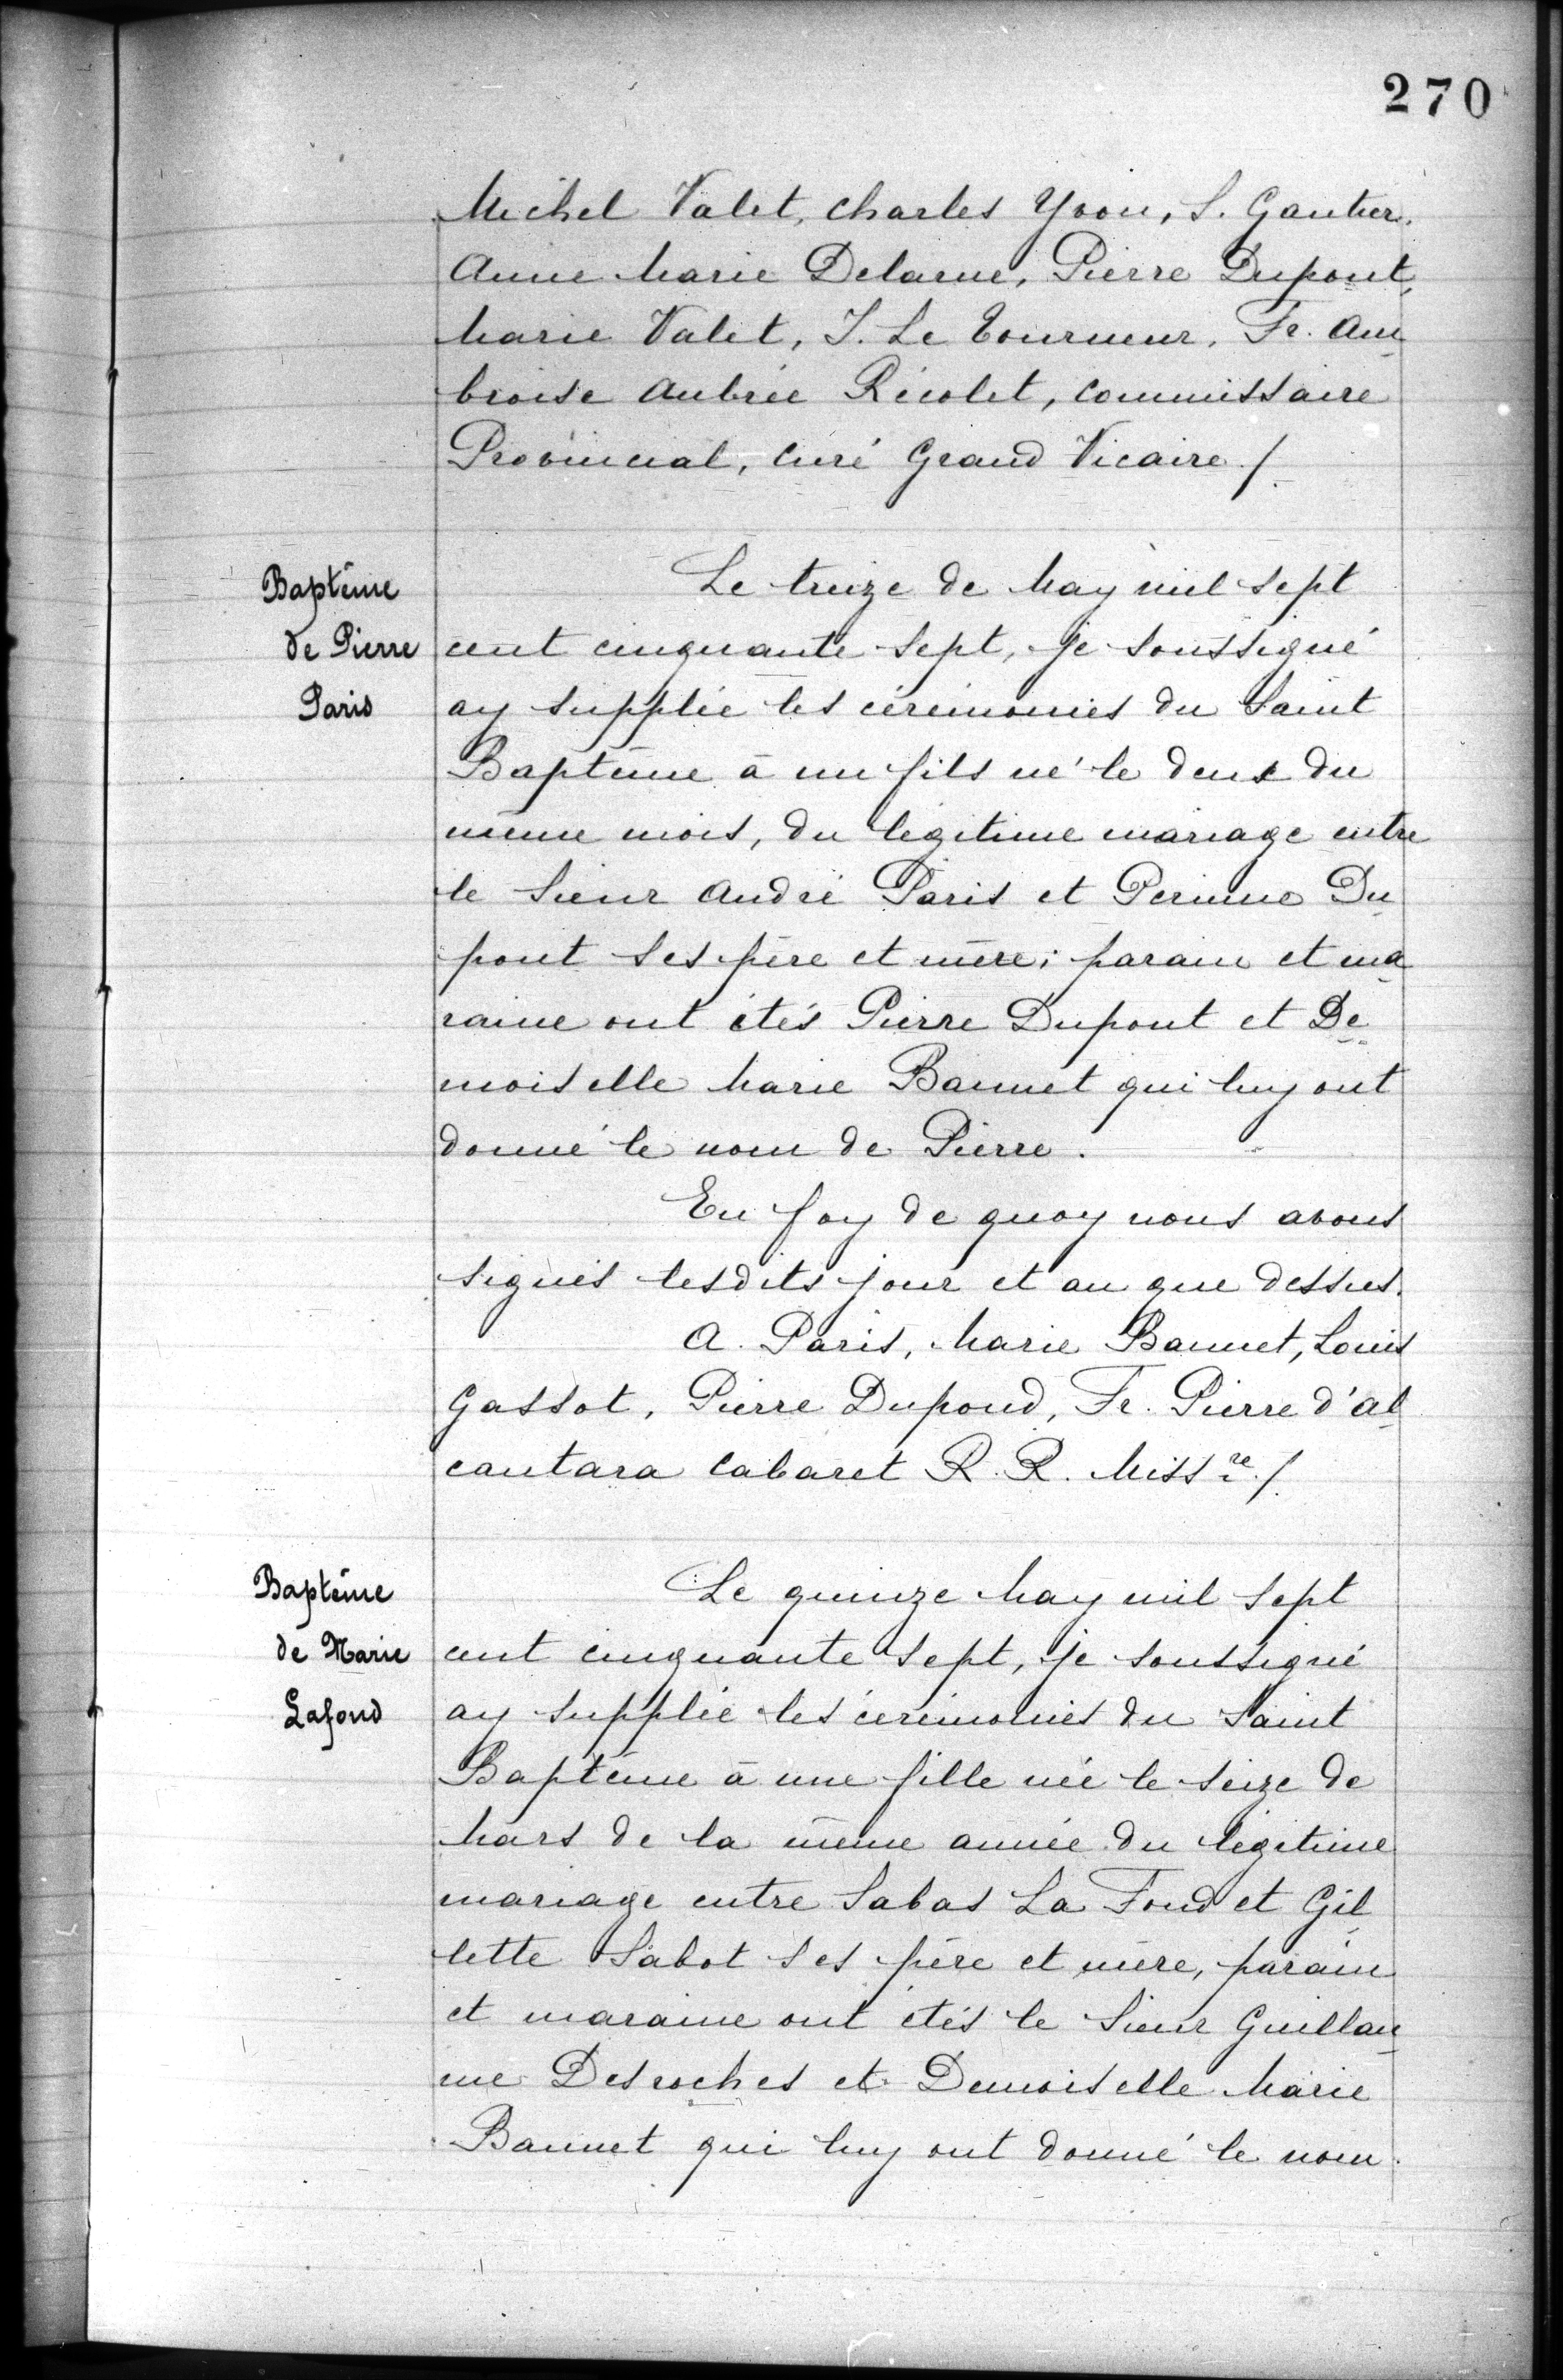 270
Michel Valet, Charles Yvon, S. Gautier,
Anne Marie Delarue, Pierre Dupont,
Marie Valet, J. Le Tourneur, Fr. Am
broise Aubrée Récolet, Commissaire
Provincial, Curé Grand Vicaire ./.
Baptême
de Pierre
Paris
Le treize de May mil sept
cent cinquante sept, je soussigné
ay supplée les cérémonies du Saint
Baptême à un fils né le deux du
même mois, du légitime mariage entre
le Sieur André Paris et Perinne Du
pont ses père et mère; parain et ma
raine ont étés Pierre Dupont et De
moiselle Marie Bannet qui luy ont
donné le nom de Pierre.
En foy de quoy nous avons
signés lesdits jour et an que dessus.
A. Paris, Marie Bannet, Louis
Gassot, Pierre Dupond, Fr. Pierre d'Al
cantara Cabaret R. R. Miss.re ./.
Baptême
de Marie
Lafond
Le quinze May mil sept
cent cinquante sept, je soussigné
ay supplée les cérémonies du Saint
Baptême à une fille née le seize de
Mars de la même année du légitime
mariage entre Sabas La Fond et Gil
lette Sabot ses père et mère, parain
et maraine ont étés le Sieur Guillau
me Desroches et Demoiselle Marie
Bannet qui luy ont donné le nom